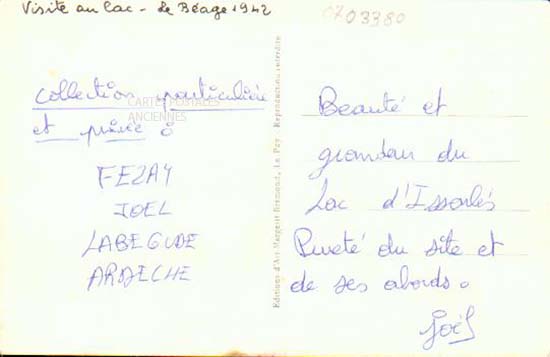 Visite au lac - Le Béage 1942
0703380
Collection particulière
et privée :
CARTES POSTALES
ANCIENNES
FEZAY
JOEL
LABEGUDE
ARDECHE
Editions d'Art Margerit-Bremond, Le Puy Reproduction interdite
Beauté et
grandeur du
Lac d'Issarlès
Pureté du site et
de ses abords.
Joël